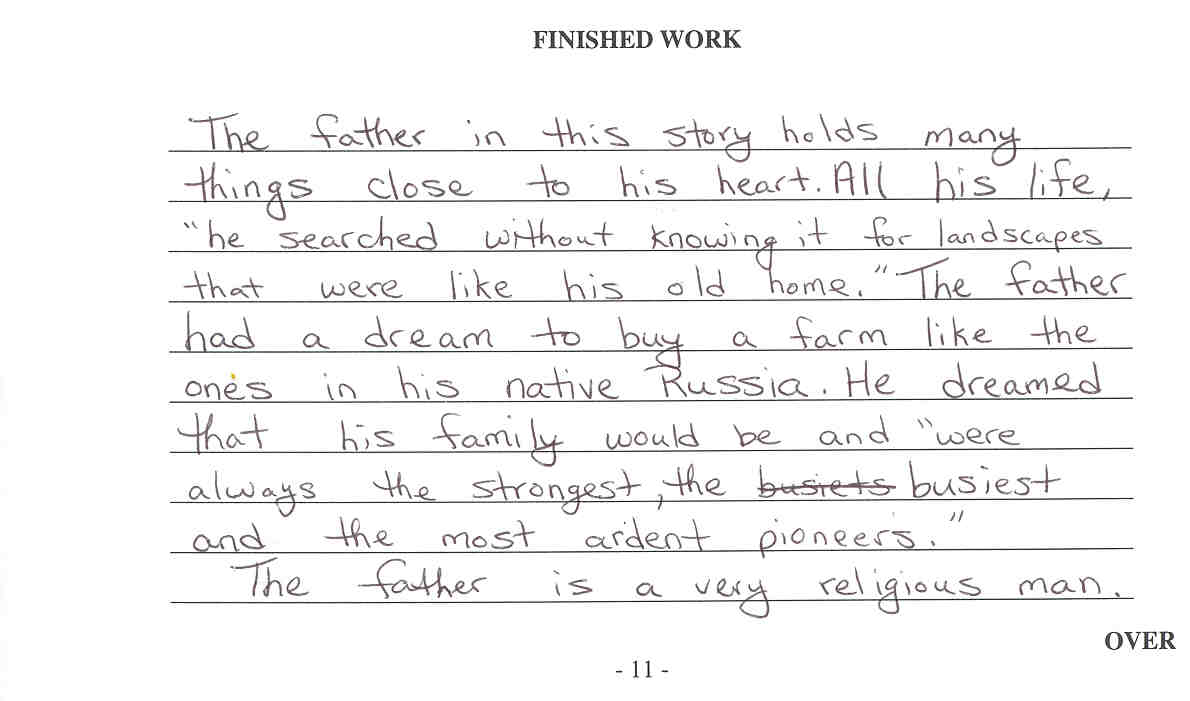 FINISHED WORK
The father in this story holds many
things close to his heart. All his life,
"he searched without knowing it for landscapes
that were like his old home." The father
had a dream to buy a farm like the
ones in his native Russia. He dreamed
that his family would be and "were
always the strongest, the busiets busiest
and the most ardent pioneers."
The father is a very religious man.
OVER
- 11 -